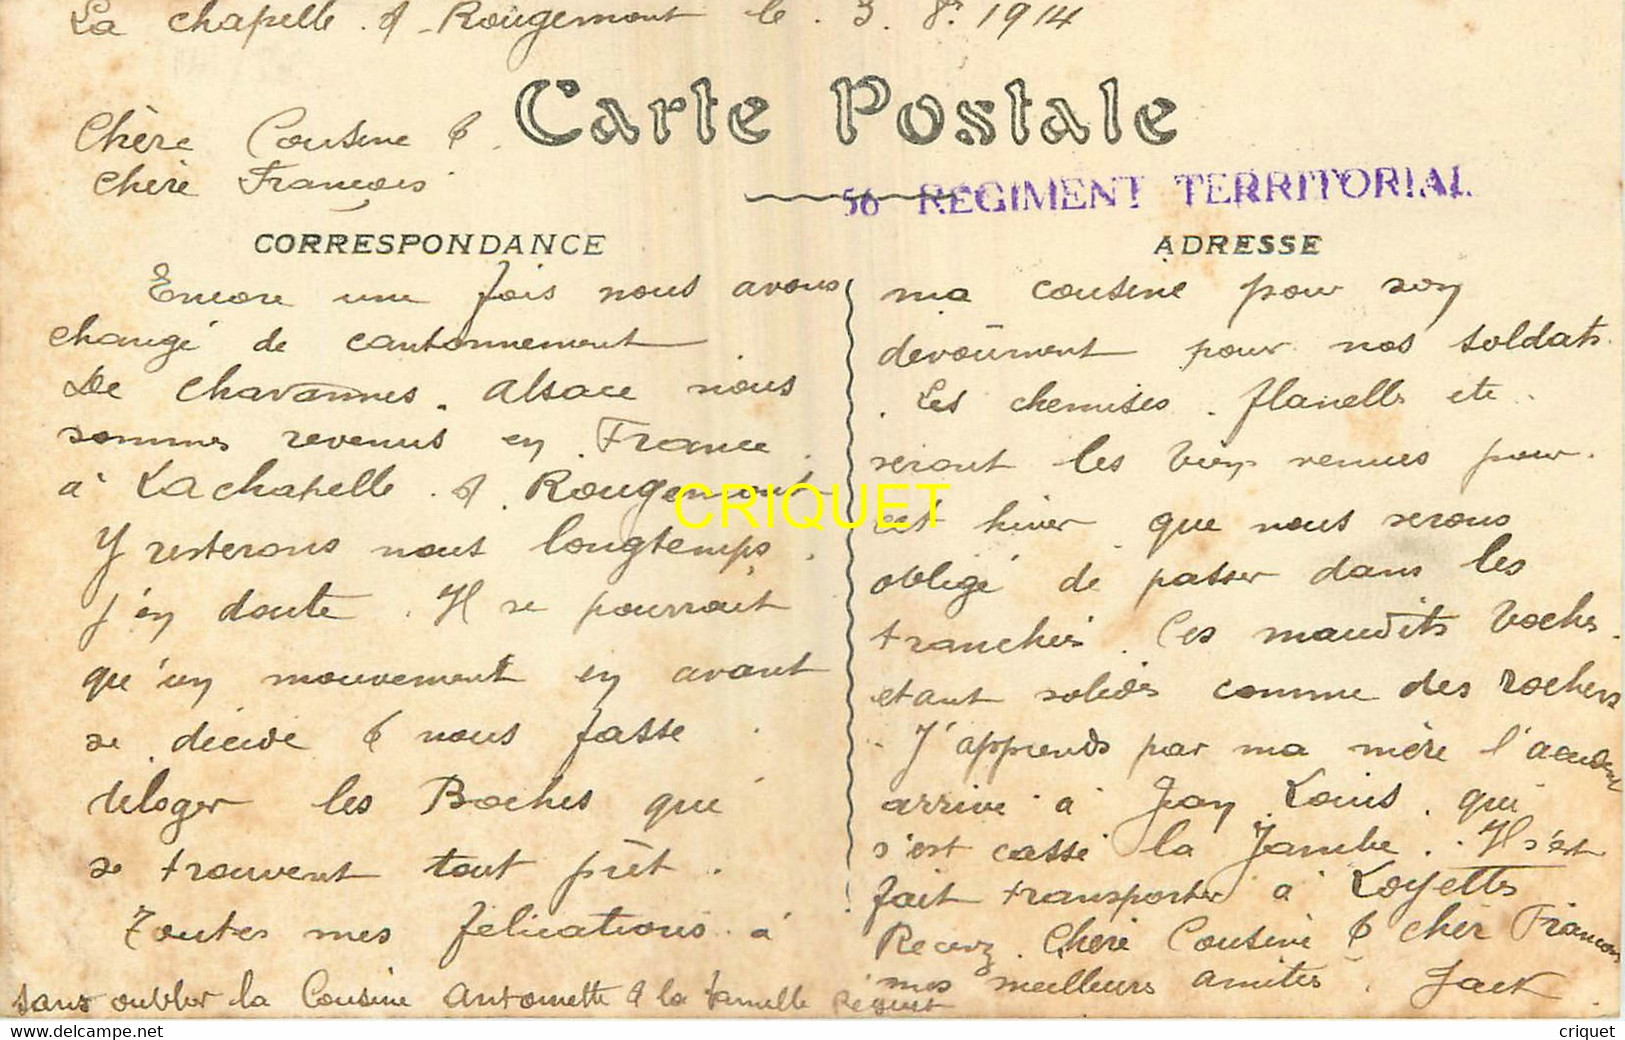 La Chapelle s/ Rougemont le 3. 8bre 1914
Carte Postale
Chère Cousine &
Chèr François
56 REGIMENT TERRITORIAL
CORRESPONDANCE
ADRESSE
Encore une fois nous avons
changé de cantonnement
De Chavannes. Alsace nous
sommes revenus en France
à Lachapelle s/ Rougemont
Y resterons nous longtemps,
j'en doute. Il se pourrait
qu'un mouvement en avant
se décide & nous fasse
deloger les Boches qui
se trouvent tout prêt.
Toutes mes felications à
ma cousine pour son
devoûment pour nos soldats.
Les chemises. flanelles etc.
seront les bien venues pour
cet hiver que nous serons
obligé de passer dans les
tranchées. Ces maudits boches
etant solides comme des rochers
J'apprends par ma mère l'accident
arrivé à Jean Louis. qui
s'est cassé la Jambe. Il s'est
fait transporter à Loyettes
Recevez Chère Cousine & cher François
mes meilleurs amitiés. Jack
sans oublier la Cousine Antoinette & la famille
CRIQUET
www.delcampe.net
criquet